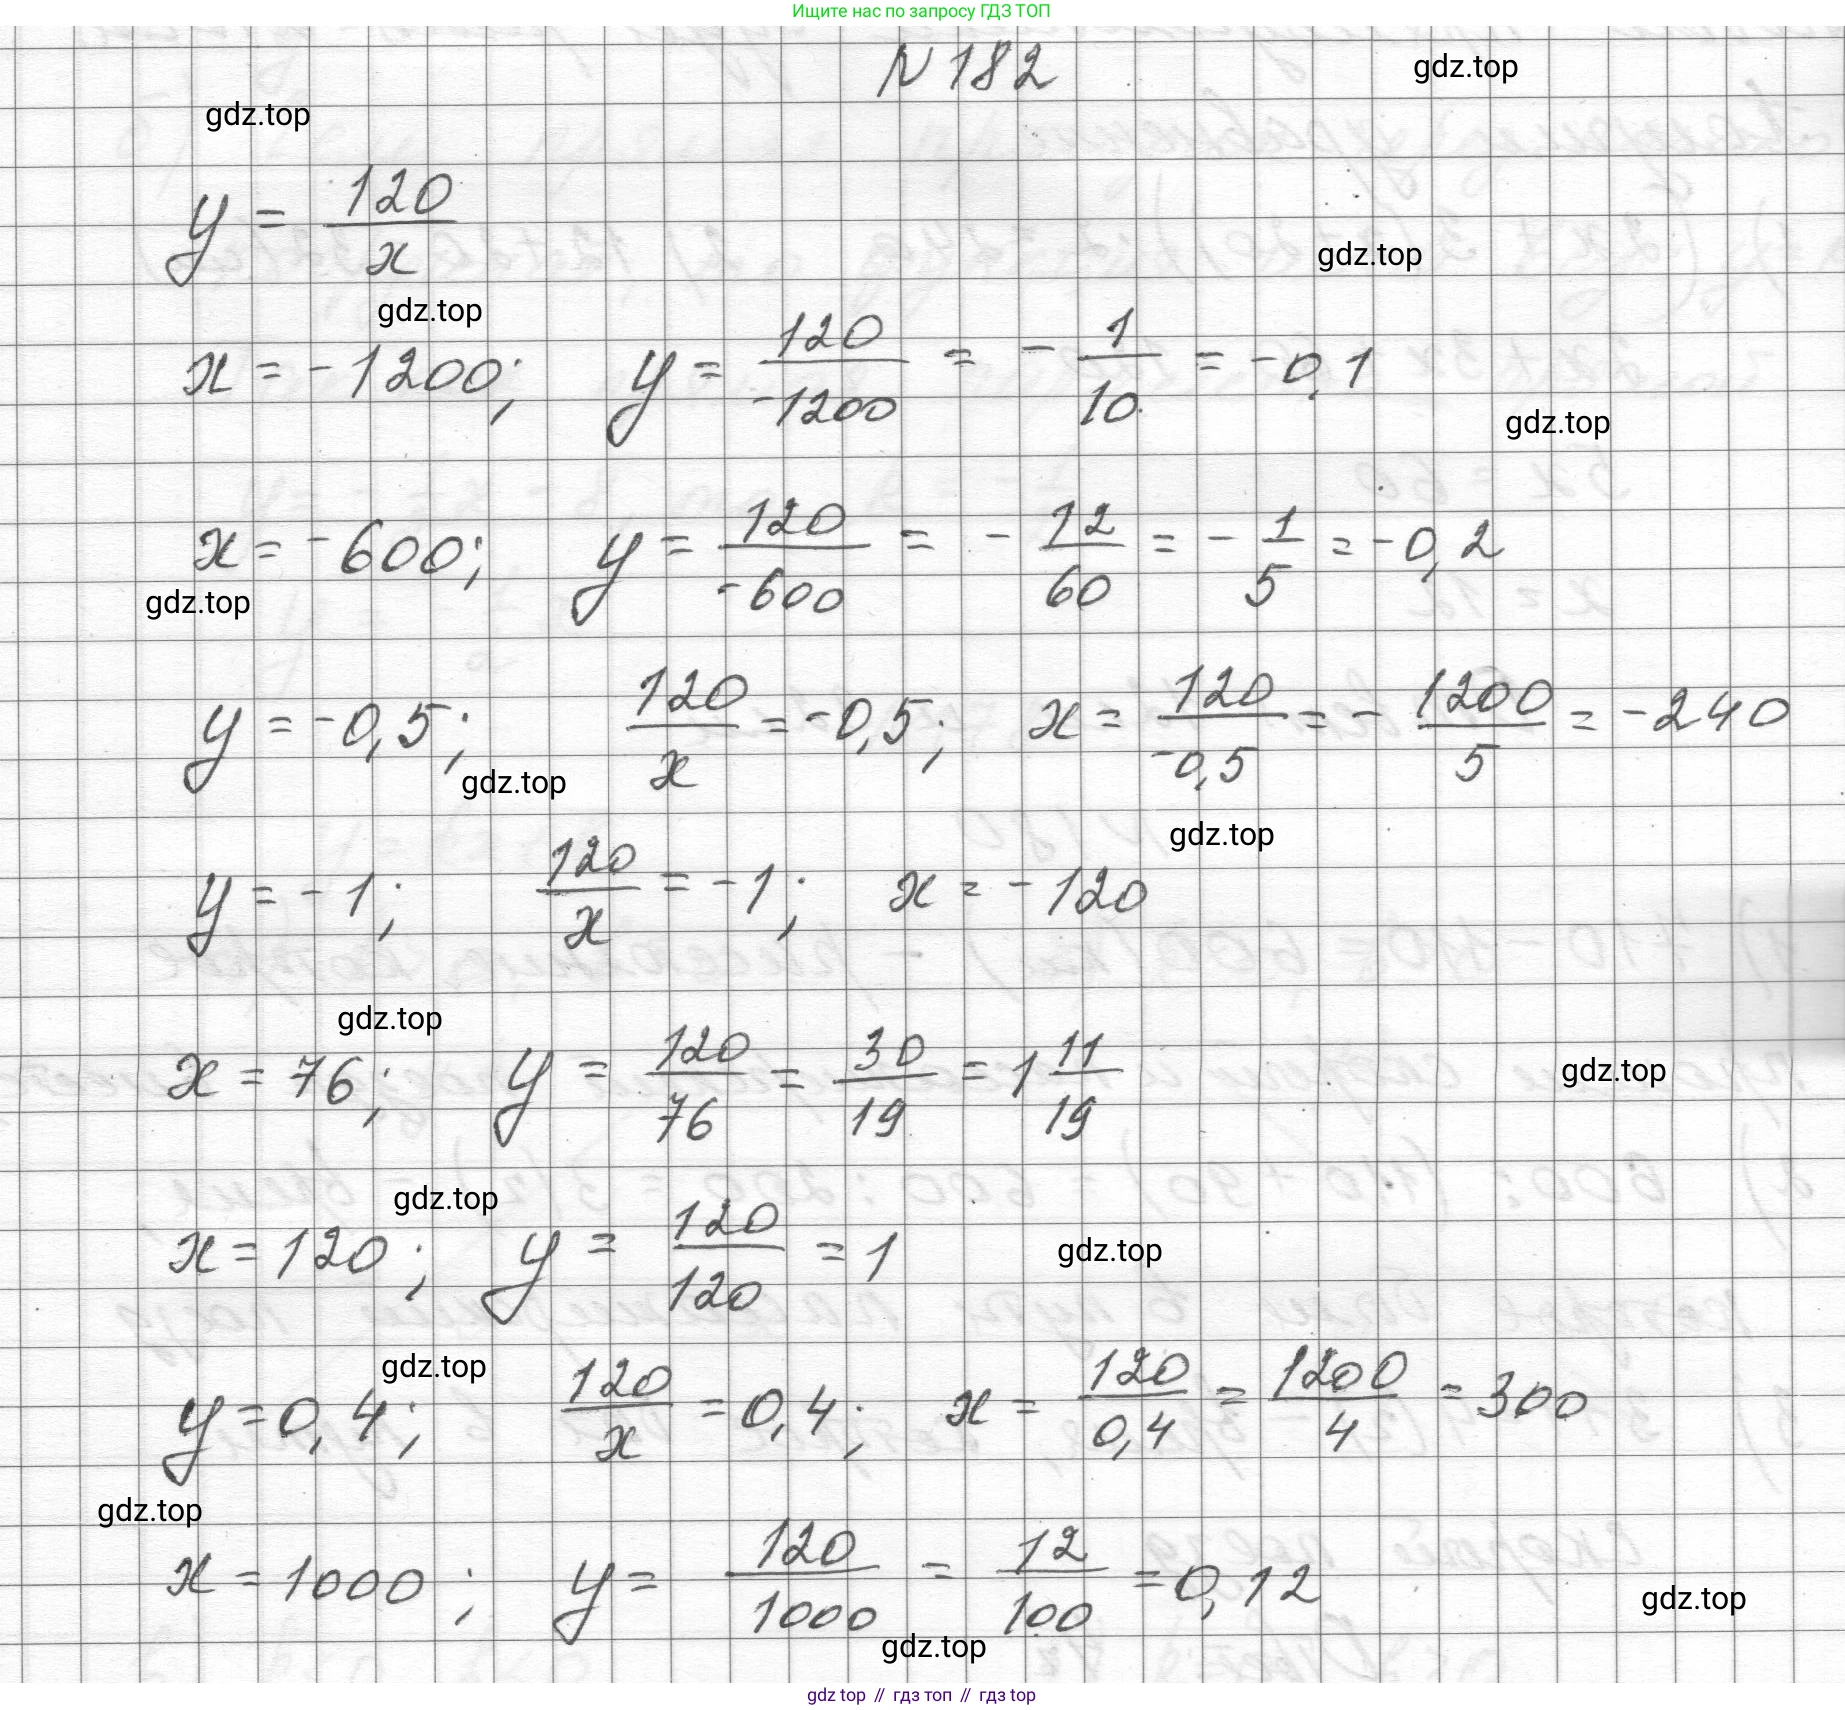 Ищите нас по запросу ГДЗ ТОП
N 182
gdz.top
gdz.top
y = 120/x
gdz.top
gdz.top
x = -1200; y = 120/-1200 = - 1/10 = -0,1
gdz.top
x = -600; y = 120/-600 = - 12/60 = - 1/5 = -0,2
gdz.top
y = -0,5; 120/x = -0,5; x = 120/-0,5 = - 1200/5 = -240
gdz.top
gdz.top
y = -1; 120/x = -1; x = -120
gdz.top
x = 76; y = 120/76 = 30/19 = 1 11/19
gdz.top
gdz.top
x = 120; y = 120/120 = 1
gdz.top
gdz.top
y = 0,4; 120/x = 0,4; x = 120/0,4 = 1200/4 = 300
gdz.top
x = 1000; y = 120/1000 = 12/100 = 0,12
gdz.top
gdz.top
gdz top // гдз топ // гдз top